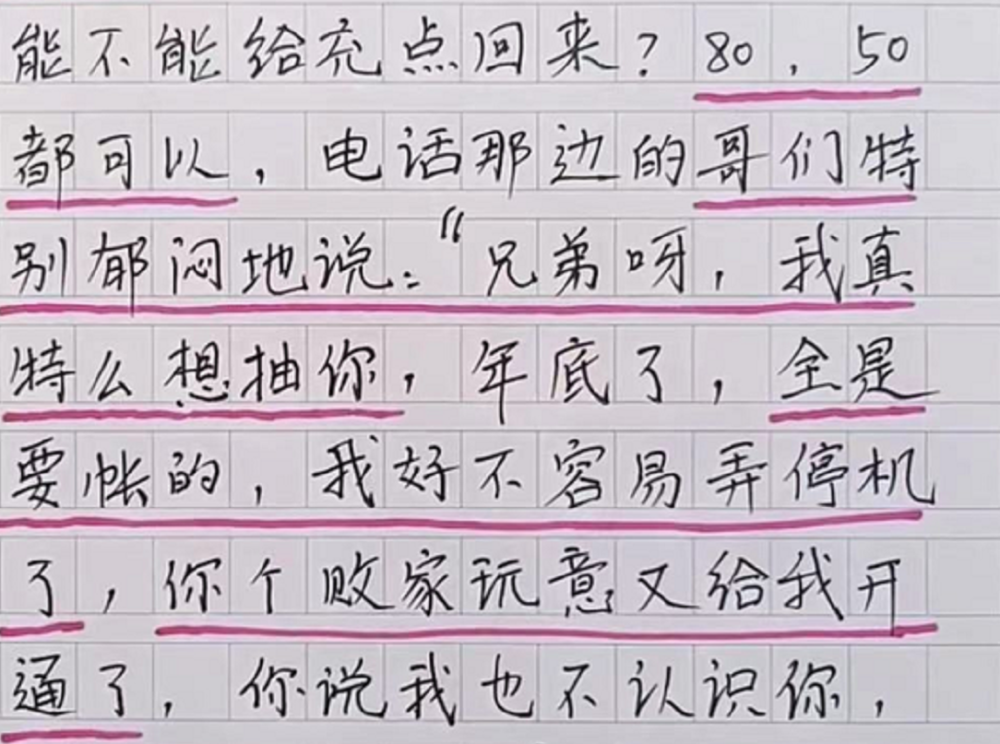 能不能给充点回来？80，50
都可以，电话那边的哥们特
别郁闷地说：“兄弟呀，我真
特么想抽你，年底了，全是
要帐的，我好不容易弄停机
了，你个败家玩意又给我开
通了，你说我也不认识你，